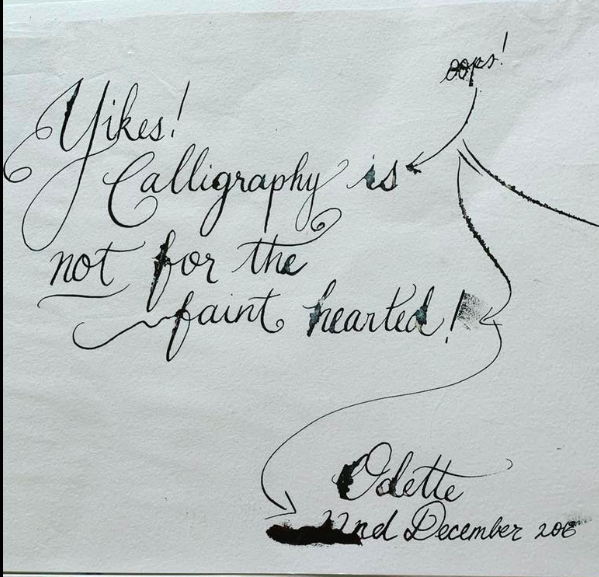 oops!
Yikes!
Calligraphy is
not for the
faint hearted!
Odette
22nd December